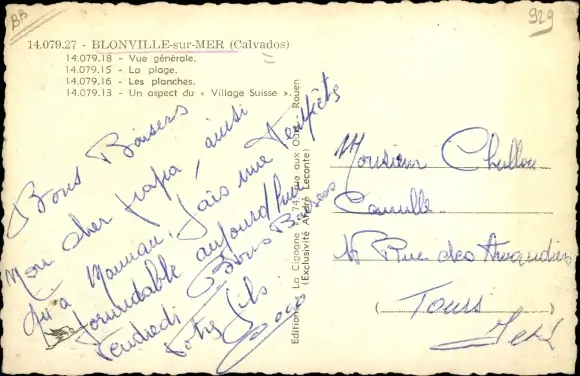 BB
929
14.079.27 - BLONVILLE-sur-MER (Calvados)
14.079.18 - Vue générale.
14.079.15 - La plage.
14.079.16 - Les planches.
14.079.13 - Un aspect du « Village Suisse ».
Bons Baisers
Mon cher papa, ainsi
qu'a Maman. Fais une
formidable aujourd'hui
Vendredi Bons Baisers
Votre fils
Coco
Editions La Cigogne - 74, rue aux Ours - Rouen
(Exclusivité André Leconte)
Monsieur
Camille
Rue des
Tours